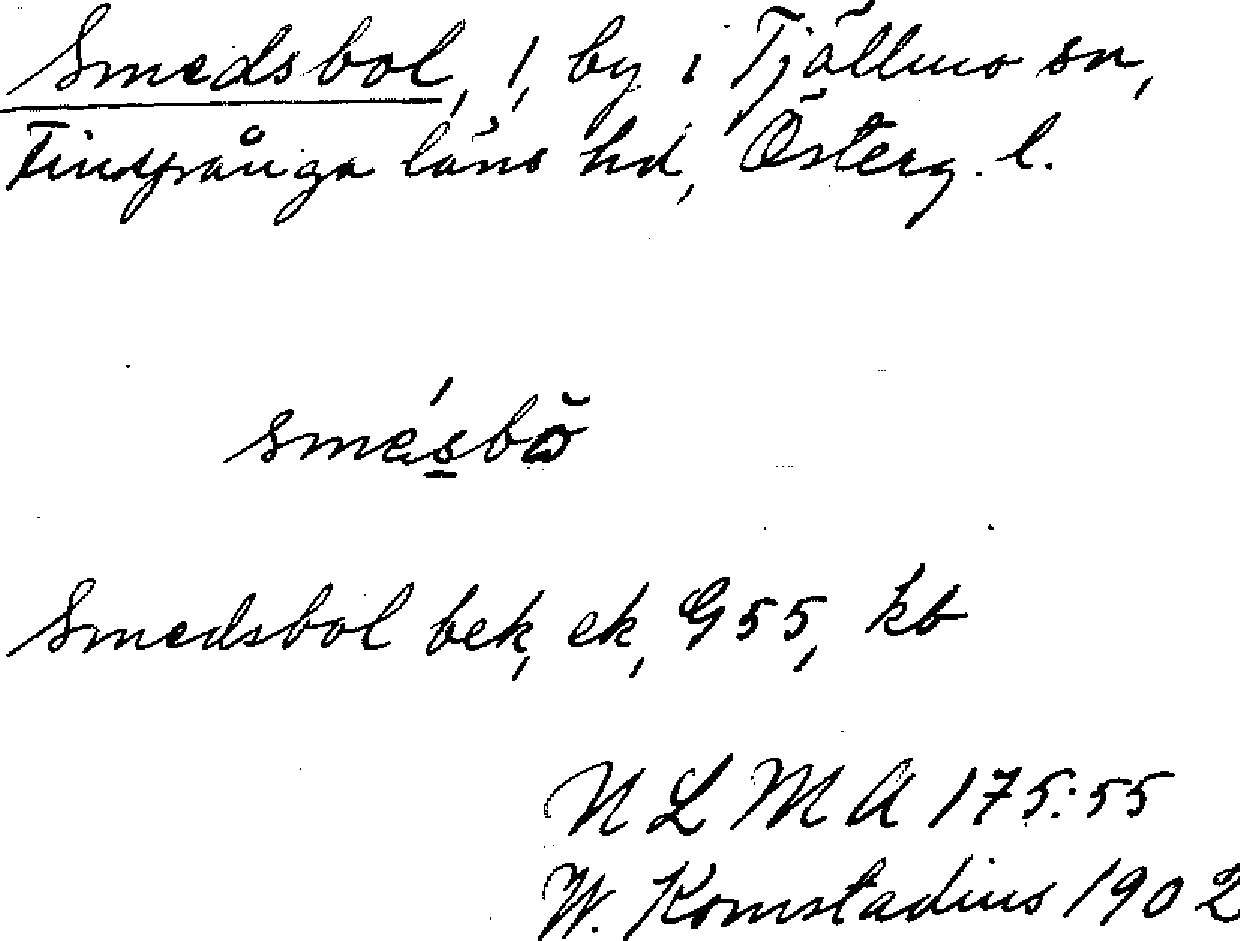 Smedsbol, 1, by i Tjällmo sn,
Finspånga läns hd, Österg. l.
smésbŏ
Smedsbol bek, ek, G55, kb
N L M A 175:55
W. Komstadius 1902